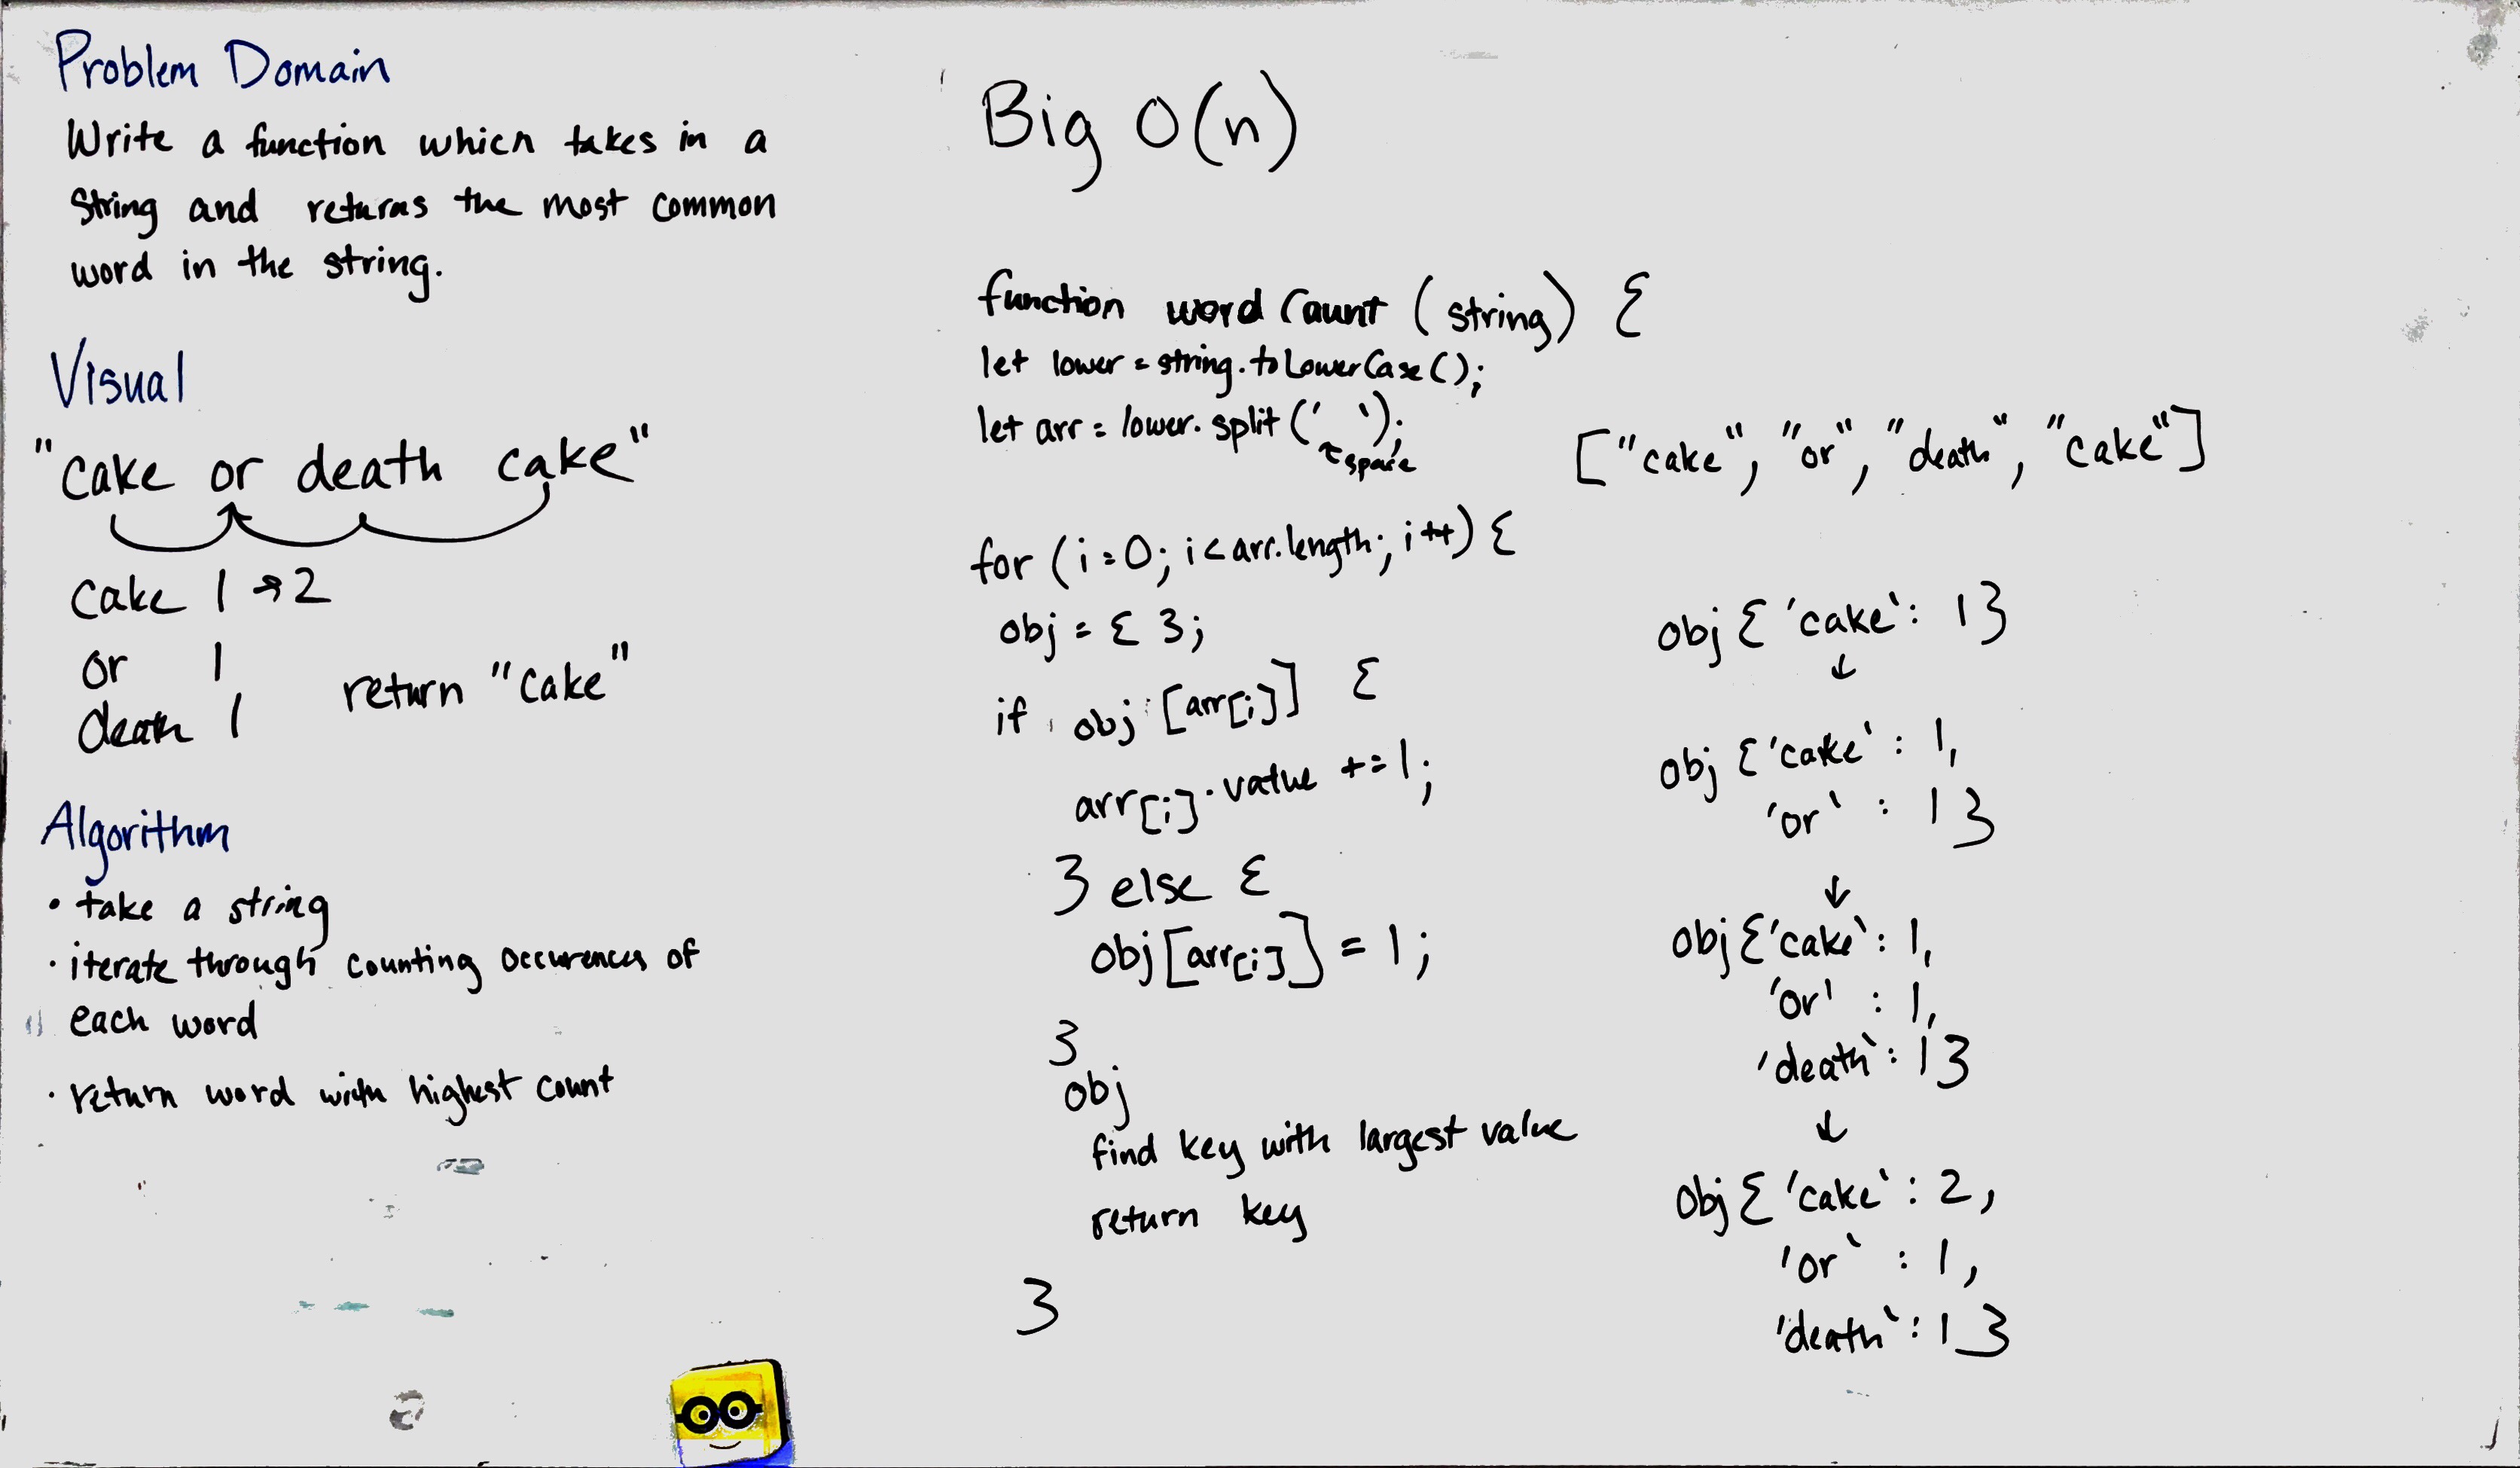 Problem Domain
Write a function which takes in a
string and returns the most common
word in the string.
Visual
"cake or death cake"
cake 1 → 2
or 1
death 1
return "cake"
Algorithm
• take a string
• iterate through counting occurences of
each word
• return word with highest count
Big O(n)
function wordCount (string) {
let lower = string.toLowerCase();
let arr = lower.split(' ');
↑ space
for (i=0; i<arr.length; i++) {
obj = { };
if obj [arr[i]] {
arr[i].value += 1;
} else {
obj[arr[i]] = 1;
}
obj
find key with largest value
return key
}
["cake", "or", "death", "cake"]
obj { 'cake': 1}
↓
obj {'cake' : 1,
'or' : 1}
↓
obj {'cake': 1,
'or' : 1,
'death': 1}
↓
obj { 'cake': 2,
'or' : 1,
'death': 1}